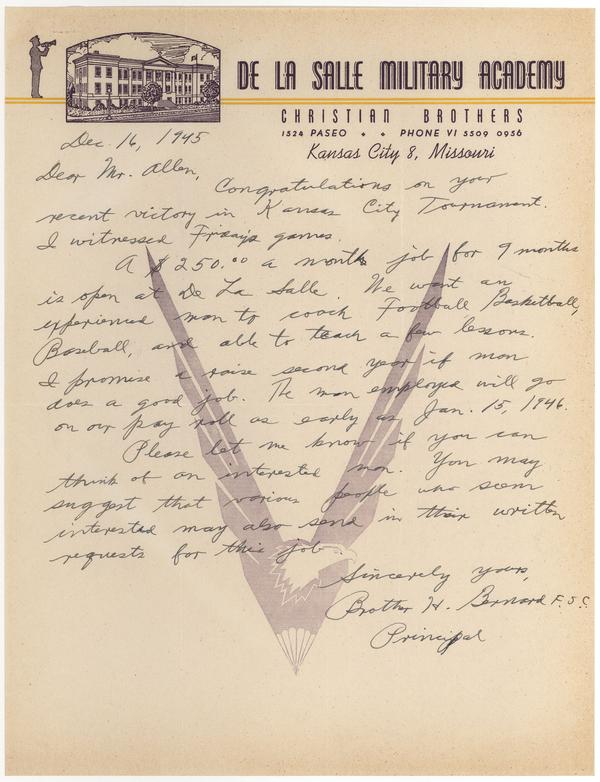 DE LA SALLE MILITARY ACADEMY
CHRISTIAN BROTHERS
1524 PASEO • • PHONE VI 5509 0956
Kansas City 8, Missouri
Dec. 16, 1945
Dear Mr. Allen,
Congratulations on your
recent victory in Kansas City Tournament.
I witnessed Friday's games.
A $250.00 a month job for 9 months
is open at De La Salle. We want an
experienced man to coach Football Basketball,
Baseball, and able to teach a few lessons.
I promise a raise second year if man
does a good job. The man employed will go
on our pay roll as early as Jan. 15, 1946.
Please let me know if you can
think of an interested man. You may
suggest that various people who seem
interested may also send in their written
requests for this job
Sincerely yours,
Brother H. Bernard F.S.C.
Principal